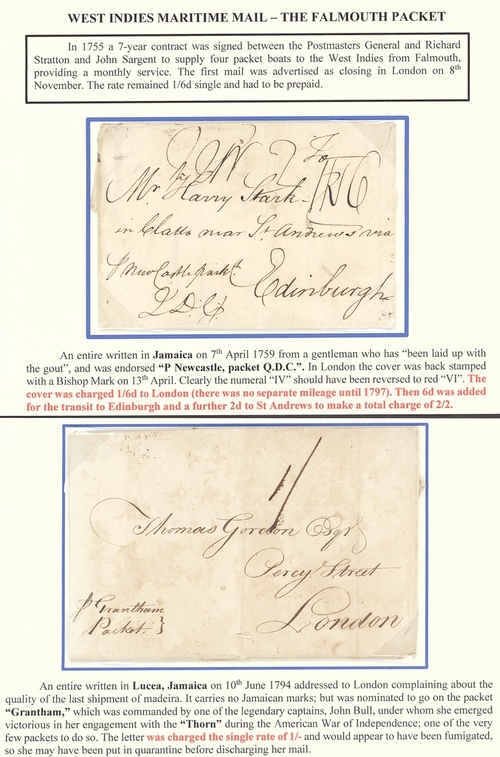 WEST INDIES MARITIME MAIL – THE FALMOUTH PACKET
In 1755 a 7-year contract was signed between the Postmasters General and Richard
Stratton and John Sargent to supply four packet boats to the West Indies from Falmouth,
providing a monthly service. The first mail was advertised as closing in London on 8th
November. The rate remained 1/6d single and had to be prepaid.
To
Mr Harry Stark
in Clatto near St Andrews via
p New Castle pack.t
Edinburgh
Q.D.C.
An entire written in Jamaica on 7th April 1759 from a gentleman who has “been laid up with
the gout”, and was endorsed “P Newcastle, packet Q.D.C.”. In London the cover was back stamped
with a Bishop Mark on 13th April. Clearly the numeral “IV” should have been reversed to red “VI”. The
cover was charged 1/6d to London (there was no separate mileage until 1797). Then 6d was added
for the transit to Edinburgh and a further 2d to St Andrews to make a total charge of 2/2.
1/
Thomas Gordon Esqr
Percy Street
London
p Grantham
Packet
An entire written in Lucea, Jamaica on 10th June 1794 addressed to London complaining about the
quality of the last shipment of madeira. It carries no Jamaican marks; but was nominated to go on the packet
“Grantham,” which was commanded by one of the legendary captains, John Bull, under whom she emerged
victorious in her engagement with the “Thorn” during the American War of Independence; one of the very
few packets to do so. The letter was charged the single rate of 1/- and would appear to have been fumigated,
so she may have been put in quarantine before discharging her mail.